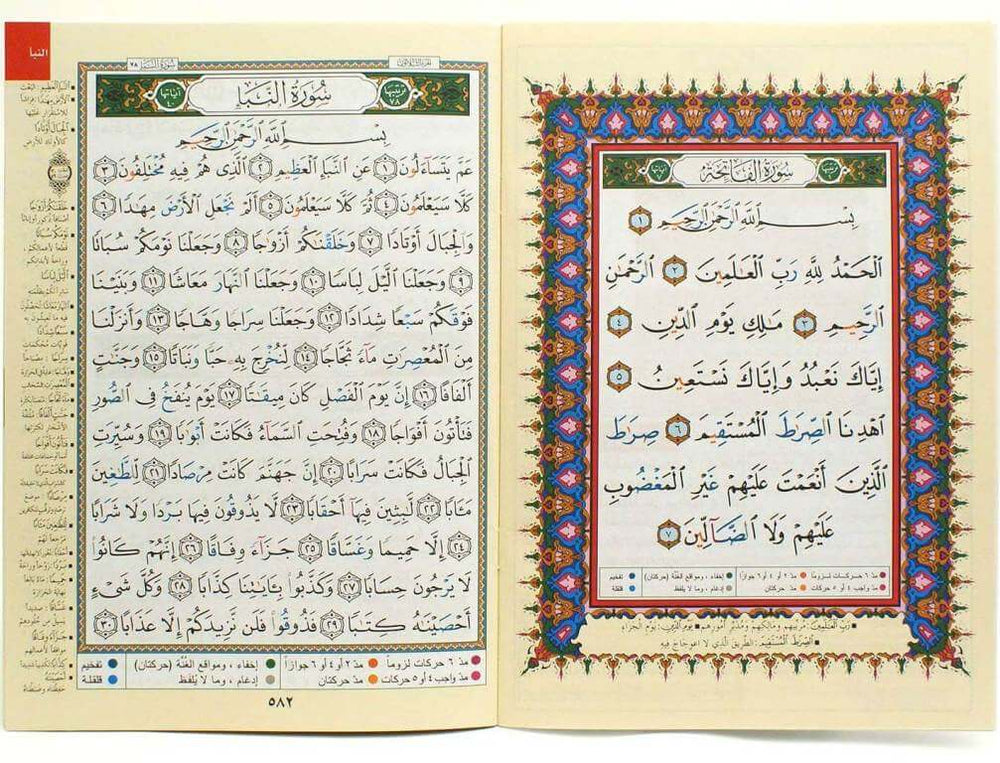 ترتيبها ١
سورة الفاتحة
آياتها ٧
بسم الله الرحمن الرحيم ١
الْحَمْدُ لِلَّهِ رَبِّ الْعَلَمِينَ ٢ الرَّحْمَنِ
الرَّحِيمِ ٣ مَلِكِ يَوْمِ الدِّينِ ٤
إِيَّاكَ نَعْبُدُ وَإِيَّاكَ نَسْتَعِينُ ٥
اهْدِنَا الصِّرَطَ الْمُسْتَقِيمَ ٦ صِرَطَ
الَّذِينَ أَنْعَمْتَ عَلَيْهِمْ غَيْرِ الْمَغْضُوبِ
عَلَيْهِمْ وَلَا الضَّالِّينَ ٧
مدّ ٦ حركات لزوماً مدّ ٢ أو ٤ أو ٦ جوازاً إخفاء، ومواقع الغُنَّة (حركتان) تفخيم
مدّ واجب ٤ أو ٥ حركات مدّ حركتان إدغام، وما لا يُلفظ قلقلة
رَبِّ الْعَلَمِينَ: مربيهم ومالكهم ومدبّر أمورهم يوم الدين: يوم الجزاء
الصِّرَطَ الْمُسْتَقِيمَ: الطريق الذي لا اعوجاج فيه
النبأ
سورة النبأ ٧٨
الجزء الثلاثون
ترتيبها ٧٨
سُورَةُ النَّبَإِ
آياتها ٤٠
بسم الله الرحمن الرحيم
عَمَّ يَتَسَاءَلُونَ ١ عَنِ النَّبَإِ الْعَظِيمِ ٢ الَّذِى هُمْ فِيهِ مُخْتَلِفُونَ ٣
كَلَّا سَيَعْلَمُونَ ٤ ثُمَّ كَلَّا سَيَعْلَمُونَ ٥ أَلَمْ نَجْعَلِ الْأَرْضَ مِهَدًا ٦
وَالْجِبَالَ أَوْتَادًا ٧ وَخَلَقْنَكُمْ أَزْوَجًا ٨ وَجَعَلْنَا نَوْمَكُمْ سُبَاتًا
٩ وَجَعَلْنَا الَّيْلَ لِبَاسًا ١٠ وَجَعَلْنَا النَّهَارَ مَعَاشًا ١١ وَبَنَيْنَا
فَوْقَكُمْ سَبْعًا شِدَادًا ١٢ وَجَعَلْنَا سِرَاجًا وَهَّاجًا ١٣ وَأَنْزَلْنَا
مِنَ الْمُعْصِرَتِ مَاءً ثَجَّاجًا ١٤ لِنُخْرِجَ بِهِ حَبًّا وَنَبَاتًا ١٥ وَجَنَّتٍ
أَلْفَافًا ١٦ إِنَّ يَوْمَ الْفَصْلِ كَانَ مِيقَتًا ١٧ يَوْمَ يُنْفَخُ فِى الصُّورِ
فَتَأْتُونَ أَفْوَاجًا ١٨ وَفُتِحَتِ السَّمَاءُ فَكَانَتْ أَبْوَبًا ١٩ وَسُيِّرَتِ
الْجِبَالُ فَكَانَتْ سَرَابًا ٢٠ إِنَّ جَهَنَّمَ كَانَتْ مِرْصَادًا ٢١ لِلطَّغِينَ
مَئَابًا ٢٢ لَبِثِينَ فِيهَا أَحْقَابًا ٢٣ لَا يَذُوقُونَ فِيهَا بَرْدًا وَلَا شَرَابًا
٢٤ إِلَّا حَمِيمًا وَغَسَّاقًا ٢٥ جَزَاءً وِفَاقًا ٢٦ إِنَّهُمْ كَانُوا
لَا يَرْجُونَ حِسَابًا ٢٧ وَكَذَّبُوا بِئَايَتِنَا كِذَّابًا ٢٨ وَكُلَّ شَىْءٍ
أَحْصَيْنَهُ كِتَبًا ٢٩ فَذُوقُوا فَلَنْ نَزِيدَكُمْ إِلَّا عَذَابًا ٣٠
مدّ ٦ حركات لزوماً مدّ ٢ أو ٤ أو ٦ جوازاً إخفاء، ومواقع الغُنَّة (حركتان) تفخيم
مدّ واجب ٤ أو ٥ حركات مدّ حركتان إدغام، وما لا يُلفظ قلقلة
٥٨٢